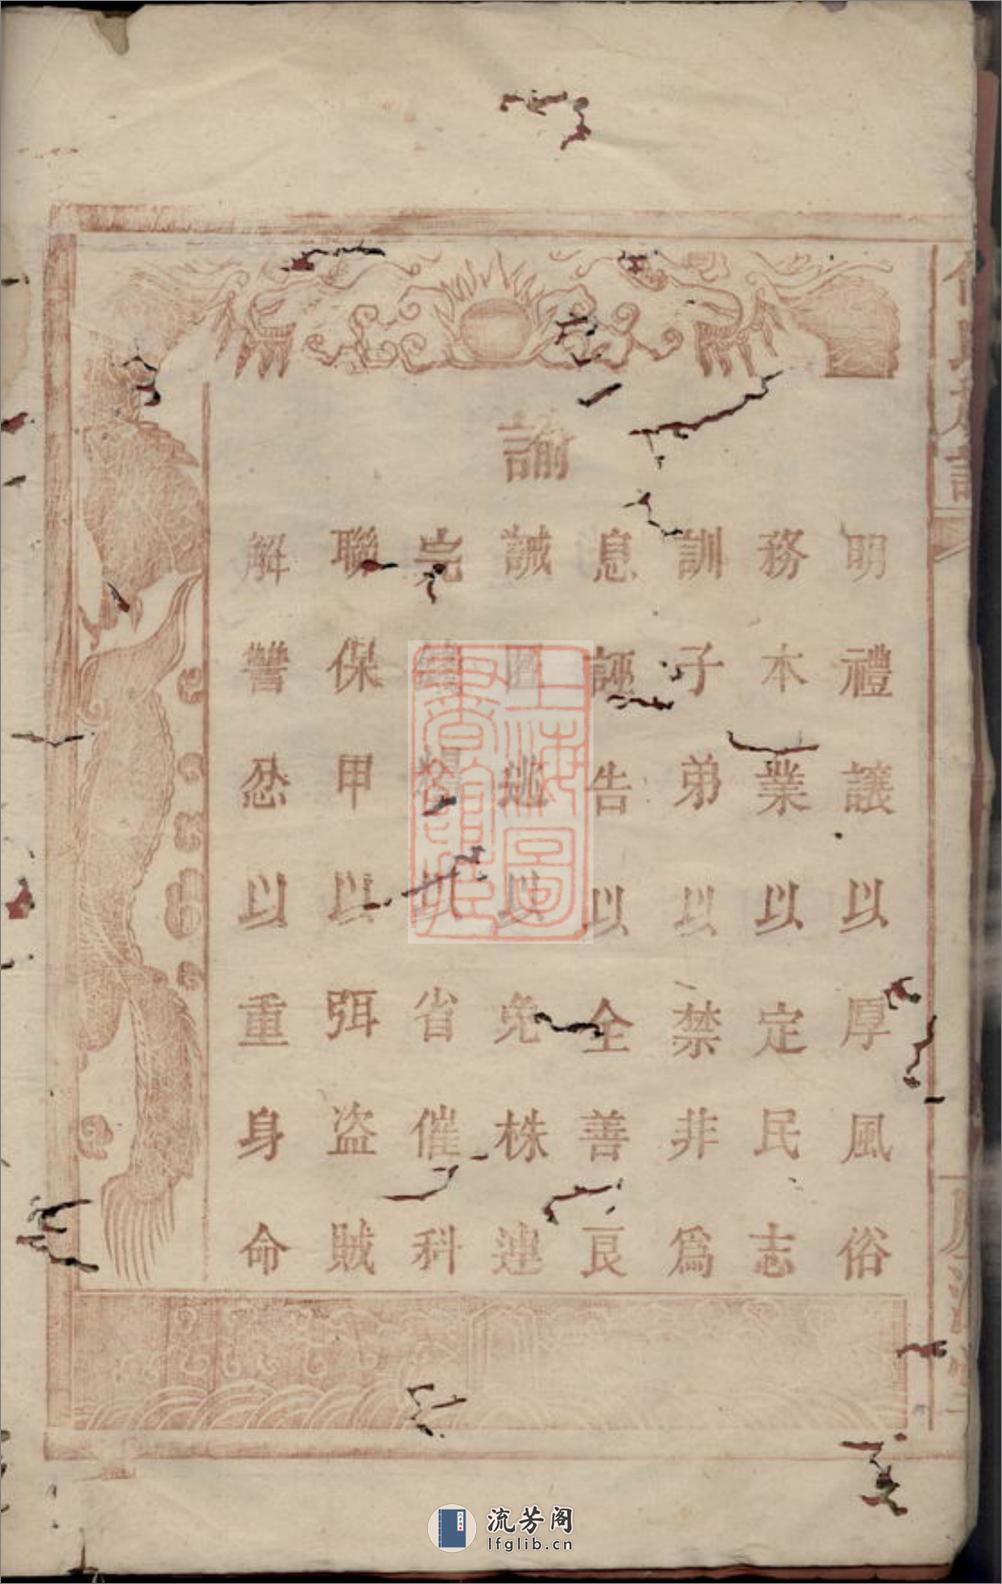 諭
明禮讓以厚風俗
務本業以定民志
訓子弟以禁非為
息誣告以全善良
誡匿逃以免株連
完錢糧以省催科
聯保甲以弭盜賊
解讐忿以重身命
上海圖書館藏
流芳阁
lfglib.cn